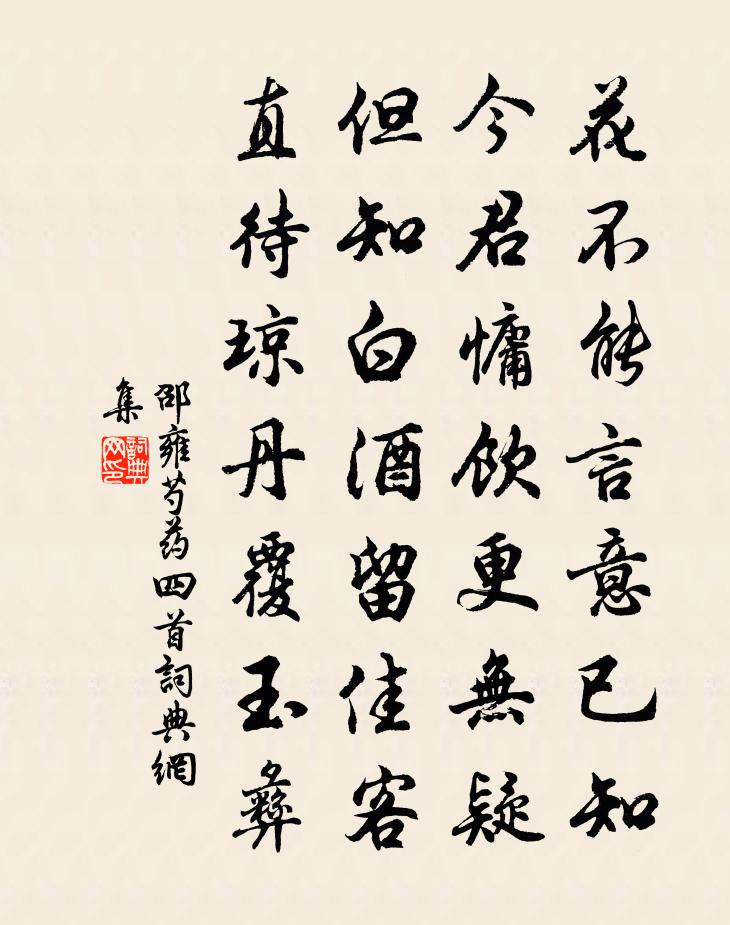 花不能言意已知
今君慵飲更無疑
但知白酒留佳客
直待琼丹覆玉彝
邵雍芍药四首詞典網
集
詞典
网印